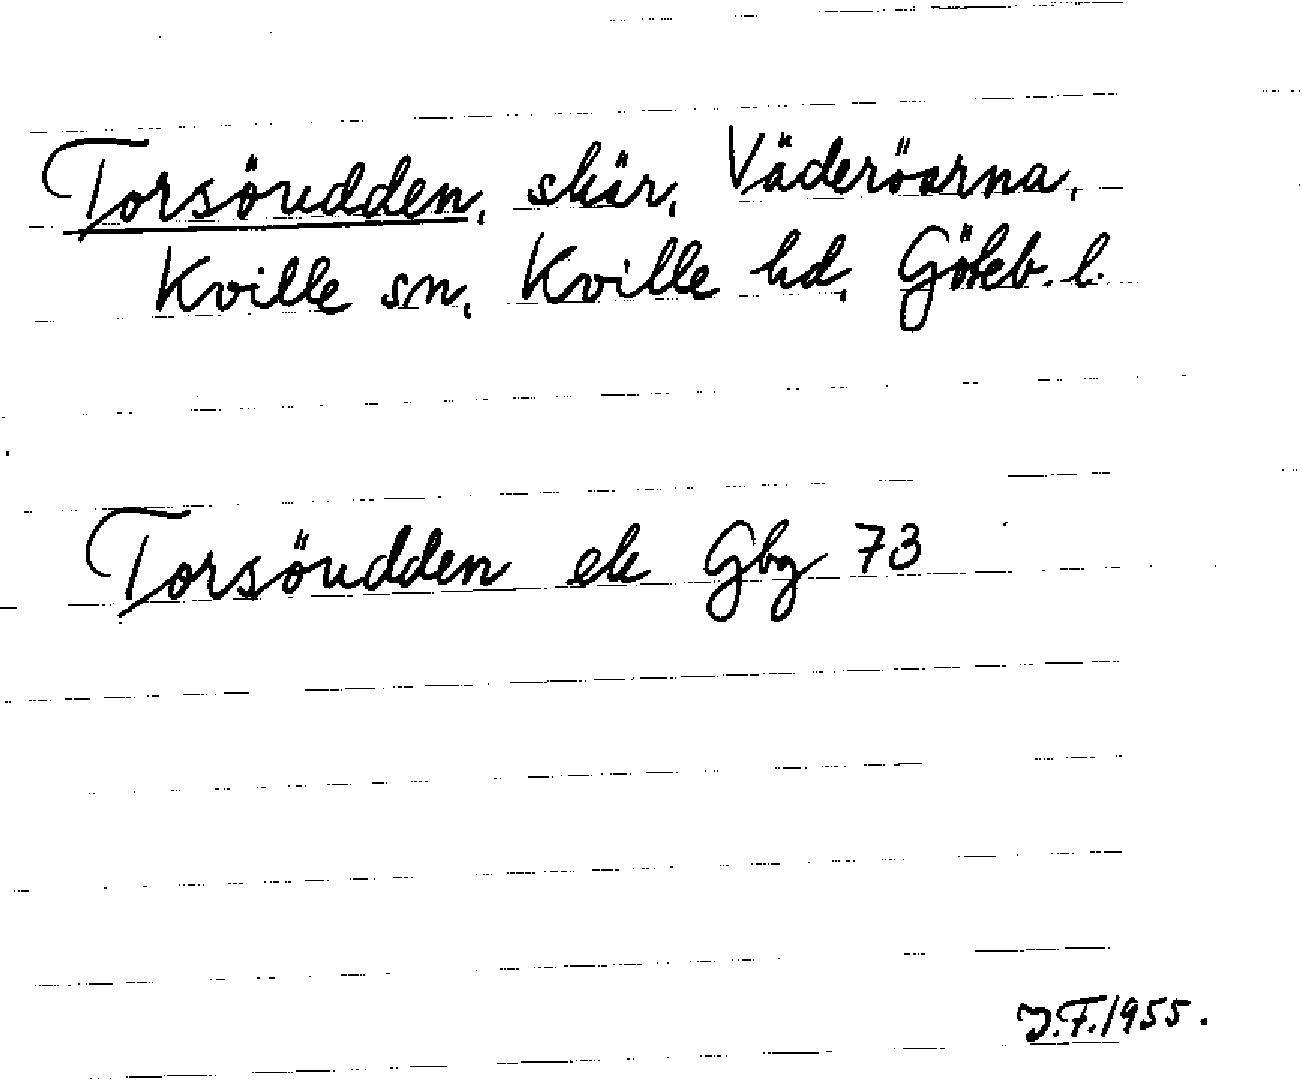 Torsöudden, skär, Väderöarna,
Kville sn, Kville hd, Göteb. l.
Torsöudden ek Gbg 73
J.F. 1955.